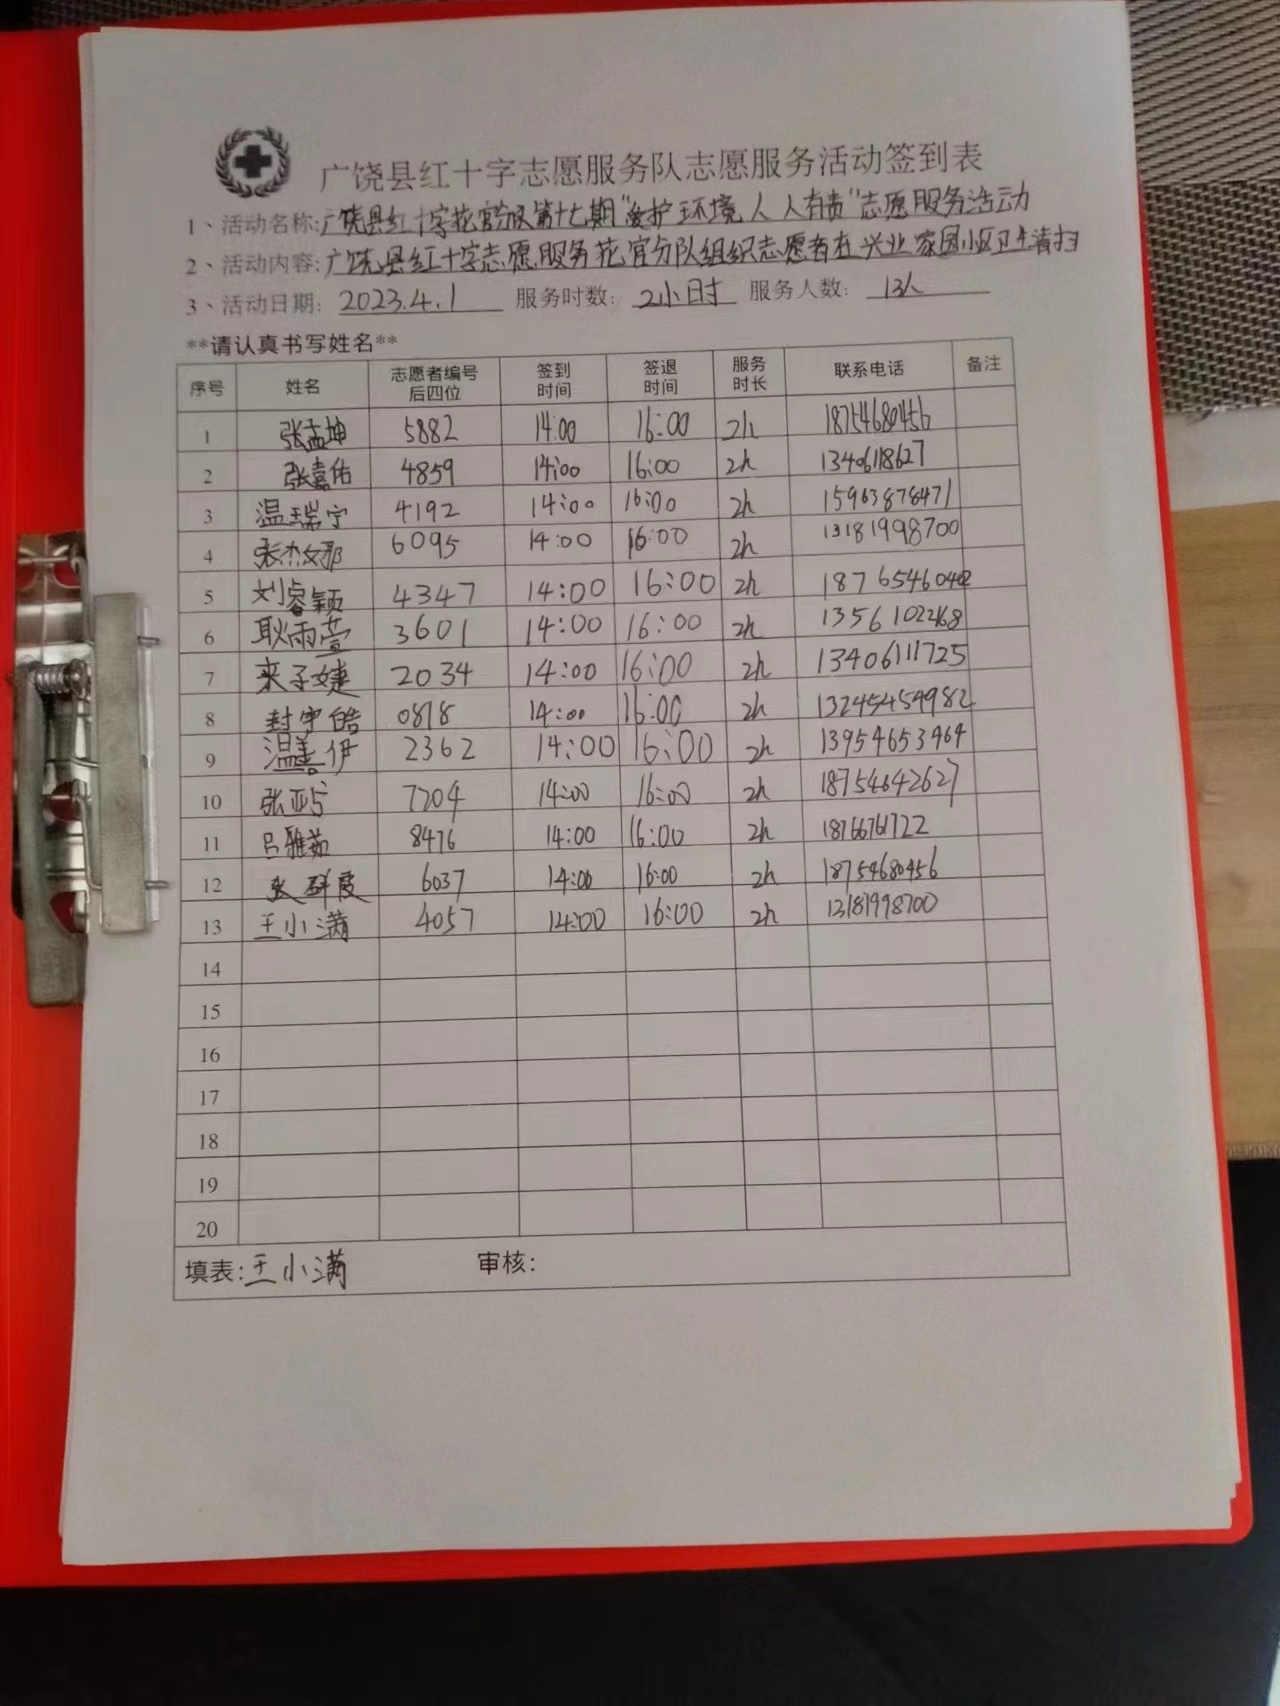 广饶县红十字志愿服务队志愿服务活动签到表
1、活动名称:广饶县红十字花官分队第十七期"爱护环境人人有责"志愿服务活动
2、活动内容:广饶县红十字志愿服务花官分队组织志愿者在兴业家园小区卫生清扫
3、活动日期: 2023.4.1 服务时数: 2小时 服务人数: 13人
**请认真书写姓名**
序号 姓名 志愿者编号后四位 签到时间 签退时间 服务时长 联系电话 备注
1 张孟坤 5882 14:00 16:00 2h 18754680456
2 张嘉佑 4859 14:00 16:00 2h 13406118627
3 温瑞宁 4192 14:00 16:00 2h 15963878471
4 张杰娜 6095 14:00 16:00 2h 13181998700
5 刘睿颖 4347 14:00 16:00 2h
6 耿雨萱 3601 14:00 16:00 2h 13561022468
7 夹子婕 2034 14:00 16:00 2h 13406111725
8 封宇皓 0818 14:00 16:00 2h 13245454982
9 温善伊 2362 14:00 16:00 2h 13954653464
10 张亚宁 7204 14:00 16:00 2h 18754642627
11 吕雅茹 8476 14:00 16:00 2h 18766761722
12 张群霞 6037 14:00 16:00 2h 18754680456
13 王小满 4057 14:00 16:00 2h 13181998700
14
15
16
17
18
19
20
填表:王小满 审核: